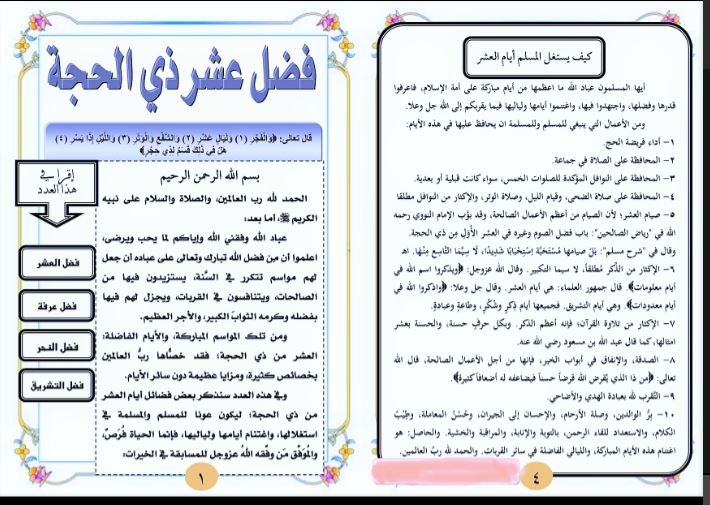 كيف يستغل المسلم أيام العشر
أيها المسلمون عباد الله ما اعظمها من أيام مباركة على أمة الإسلام، فاعرفوا
قدرها وفضلها، واجتهدوا فيها، واغتنموا أيامها ولياليها فيما يقربكم إلى الله جل وعلا.
ومن الأعمال التي ينبغي للمسلم وللمسلمة ان يحافظ عليها في هذه الأيام:
١- أداء فريضة الحج.
٢- المحافظة على الصلاة في جماعة.
٣- المحافظة على النوافل المؤكدة للصلوات الخمس، سواء كانت قبلية أو بعدية.
٤- المحافظة على صلاة الضحى، وقيام الليل، وصلاة الوتر، والإكثار من النوافل مطلقا
٥- صيام العشر؛ لأن الصيام من أعظم الأعمال الصالحة، وقد بؤب الإمام النووي رحمه
الله في "رياض الصالحين": باب فضل الصوم وغيره في العشر الأول من ذي الحجة.
وقال في "شرح مسلم": بَلْ صيامها مُسْتَحَبَّة إسْتِحْبَابًا شَدِيدًا، لَا سِيَّمَا التَّاسِع مِنْهَا. اهـ
٦- الإكثار من الذّكر مُطلقاً، لا سيما التكبير. وقال الله عزوجل: ﴿ويذكروا اسم الله في
أيام معلومات﴾. قال جمهور العلماء: هي أيام العشر. وقال جل وعلا: ﴿واذكروا الله في
أيام معدودات﴾. وهي أيام التشريق. فجميعها أيام ذِكرٍ وشُكْرٍ، وطاعةٍ وعبادةٍ.
٧- الإكثار من تلاوة القرآن؛ فإنه أعظم الذكر. وبكل حرفٍ حسنة، والحسنة بعشر
امثالها، كما قال عبد الله بن مسعود رضي الله عنه.
٨- الصدقة، والإنفاق في أبواب الخير، فإنها من أجل الأعمال الصالحة، قال الله
تعالى: ﴿من ذا الذي يُقرض اللهَ قرضاً حسناً فيضاعفه له أضعافاً كثيرة﴾.
٩- التّقرب لله بعبادة الهدي والأضاحي.
١٠- برُّ الوالدين، وصلة الأرحام، والإحسان إلى الجيران، وحُسْنُ المعاملة، وطِيْبُ
الكلام، والاستعداد للقاء الرحمن، بالتوبة والإنابة، والمراقبة والخشية. والحاصل: هو
اغتنام هذه الأيام المباركة، والليالي الفاضلة في سائر القربات. والحمد لله ربِّ العالمين.
٤
فضل عشر ذي الحجة
قال تعالى: ﴿وَالْفَجْرِ (١) وَلَيَالٍ عَشْرٍ (٢) وَالشَّفْعِ وَالْوَتْرِ (٣) وَاللَّيْلِ إِذَا يَسْرِ (٤)
هَلْ فِي ذَلِكَ قَسَمٌ لِذِي حِجْرٍ﴾
بسم الله الرحمن الرحيم
الحمد لله رب العالمين، والصلاة والسلام على نبيه
الكريم ﷺ؛ اما بعد:
عباد الله وفقني الله وإياكم لما يحب ويرضى،
اعلموا أن من فضل الله تبارك وتعالى على عباده أن جعل
لهم مواسم تتكرر في السَّنة، يستزيدون فيها من
الصالحات، ويتنافسون في القربات، ويجزل لهم فيها
بفضله وكرمه الثوابَ الكبير، والأجر العظيم.
ومن تلك المواسم المباركة، والأيام الفاضلة:
العشر من ذي الحجة؛ فقد خصَّاها ربُّ العالمين
بخصائص كثيرة، ومزايا عظيمة دون سائر الأيام.
وفي هذه العدد سنذكر بعض فضائل أيام العشر
من ذي الحجة؛ ليكون عونا للمسلم والمسلمة في
استغلالها، واغتنام أيامها ولياليها، فإنما الحياة فُرَصٌ،
والمُوَفَّق مَن وفّقه اللهُ عزوجل للمسابقة في الخيرات:
إقرأ في
هذا العدد
فضل العشر
فضل عرفة
فضل النحر
فضل التشريق
١